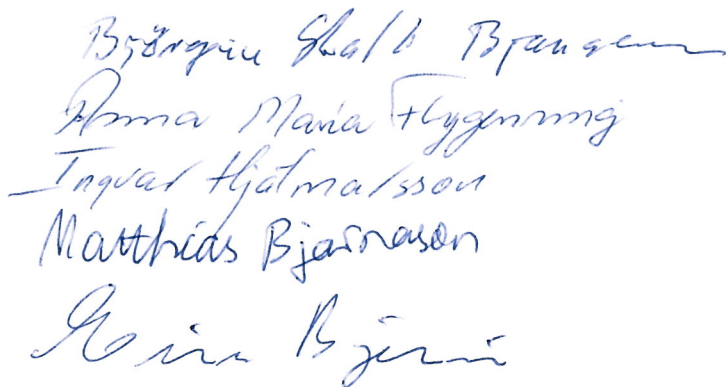 Björgvin Skafti Bjarnason
Anna María Flygenring
Ingvar Hjálmarsson
Matthías Bjarnason
Bjarni